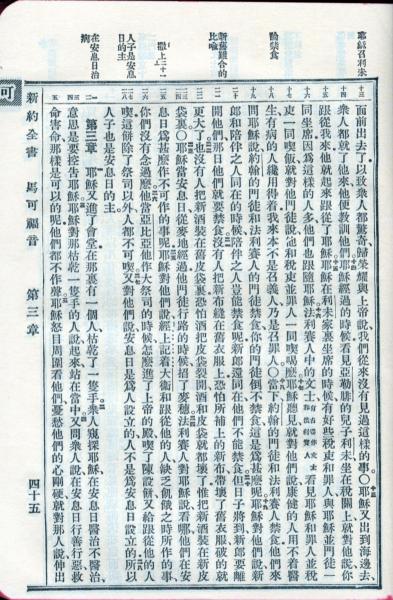 耶穌召利未
論禁食
新舊難合的
比喻
撒上二十一
人子是安息
日的主
在安息日治
病
十三
面前出去了以致衆人都驚奇歸榮耀與上帝說我們從來沒有見過這樣的事○耶穌又出到海邊去
十四
衆人都就了他來他便敎訓他們耶穌經過的時候看見亞勒腓的兒子利未坐在稅關上就對他說你
十五
跟從我來他就起來跟從了耶穌耶穌在利未家裏坐席的時候有好些稅吏和罪人與耶穌並門徒一
十六
同坐席因爲這樣的人多他們也跟隨耶穌法利賽人中的文士有古卷作文士和法利賽人看見耶穌和罪人並稅
十七
吏一同喫飯就對他門徒說他和稅吏並罪人一同喫喝麼耶穌聽見就對他們說康健的人用不着醫
十八
生有病的人纔用得着我來本不是召義人乃是召罪人○當下約翰的門徒和法利賽人禁食他們來
十九
問耶穌說約翰的門徒和法利賽人的門徒禁食你的門徒倒不禁食這是爲甚麼呢耶穌對他們說新
二十
郎和陪伴之人同在的時候陪伴之人豈能禁食呢新郎還同在他們不能禁食但日子將到新郎要離
二一
開他們那日他們就要禁食沒有人把新布縫在舊衣服上恐怕所補上的新布帶壞了舊衣服破的就
二二
更大了也沒有人把新酒裝在舊皮袋裏恐怕酒把皮袋裂開酒和皮袋就都壞了惟把新酒裝在新皮
二三 二四
袋裏○耶穌當安息日從麥地經過他門徒行路的時候掐了麥穗法利賽人對耶穌說看哪他們在安
二五
息日爲甚麼作不可作的事呢耶穌對他們說經上記着大衛和跟從他的人缺乏飢餓之時所作的事
二六
你們沒有念過麼他當亞比亞他作大祭司的時候怎麼進了上帝的殿喫了陳設餅又給跟從他的人
二七 二八
喫這餅除了祭司以外人都不可喫又對他們說安息日是爲人設立的人不是爲安息日設立的所以
人子也是安息日的主
一 二
第三章 耶穌又進了會堂在那裏有一個人枯乾了一隻手衆人窺探耶穌在安息日醫治不醫治
三 四
意思是要控告耶穌耶穌對那枯乾一隻手的人說起來站在當中又問衆人說在安息日行善行惡救
五
命害命那樣是可以的呢他們都不作聲耶穌怒目周圍看他們憂愁他們的心剛硬就對那人說伸出
可
新約全書 馬可福音 第三章 四十五